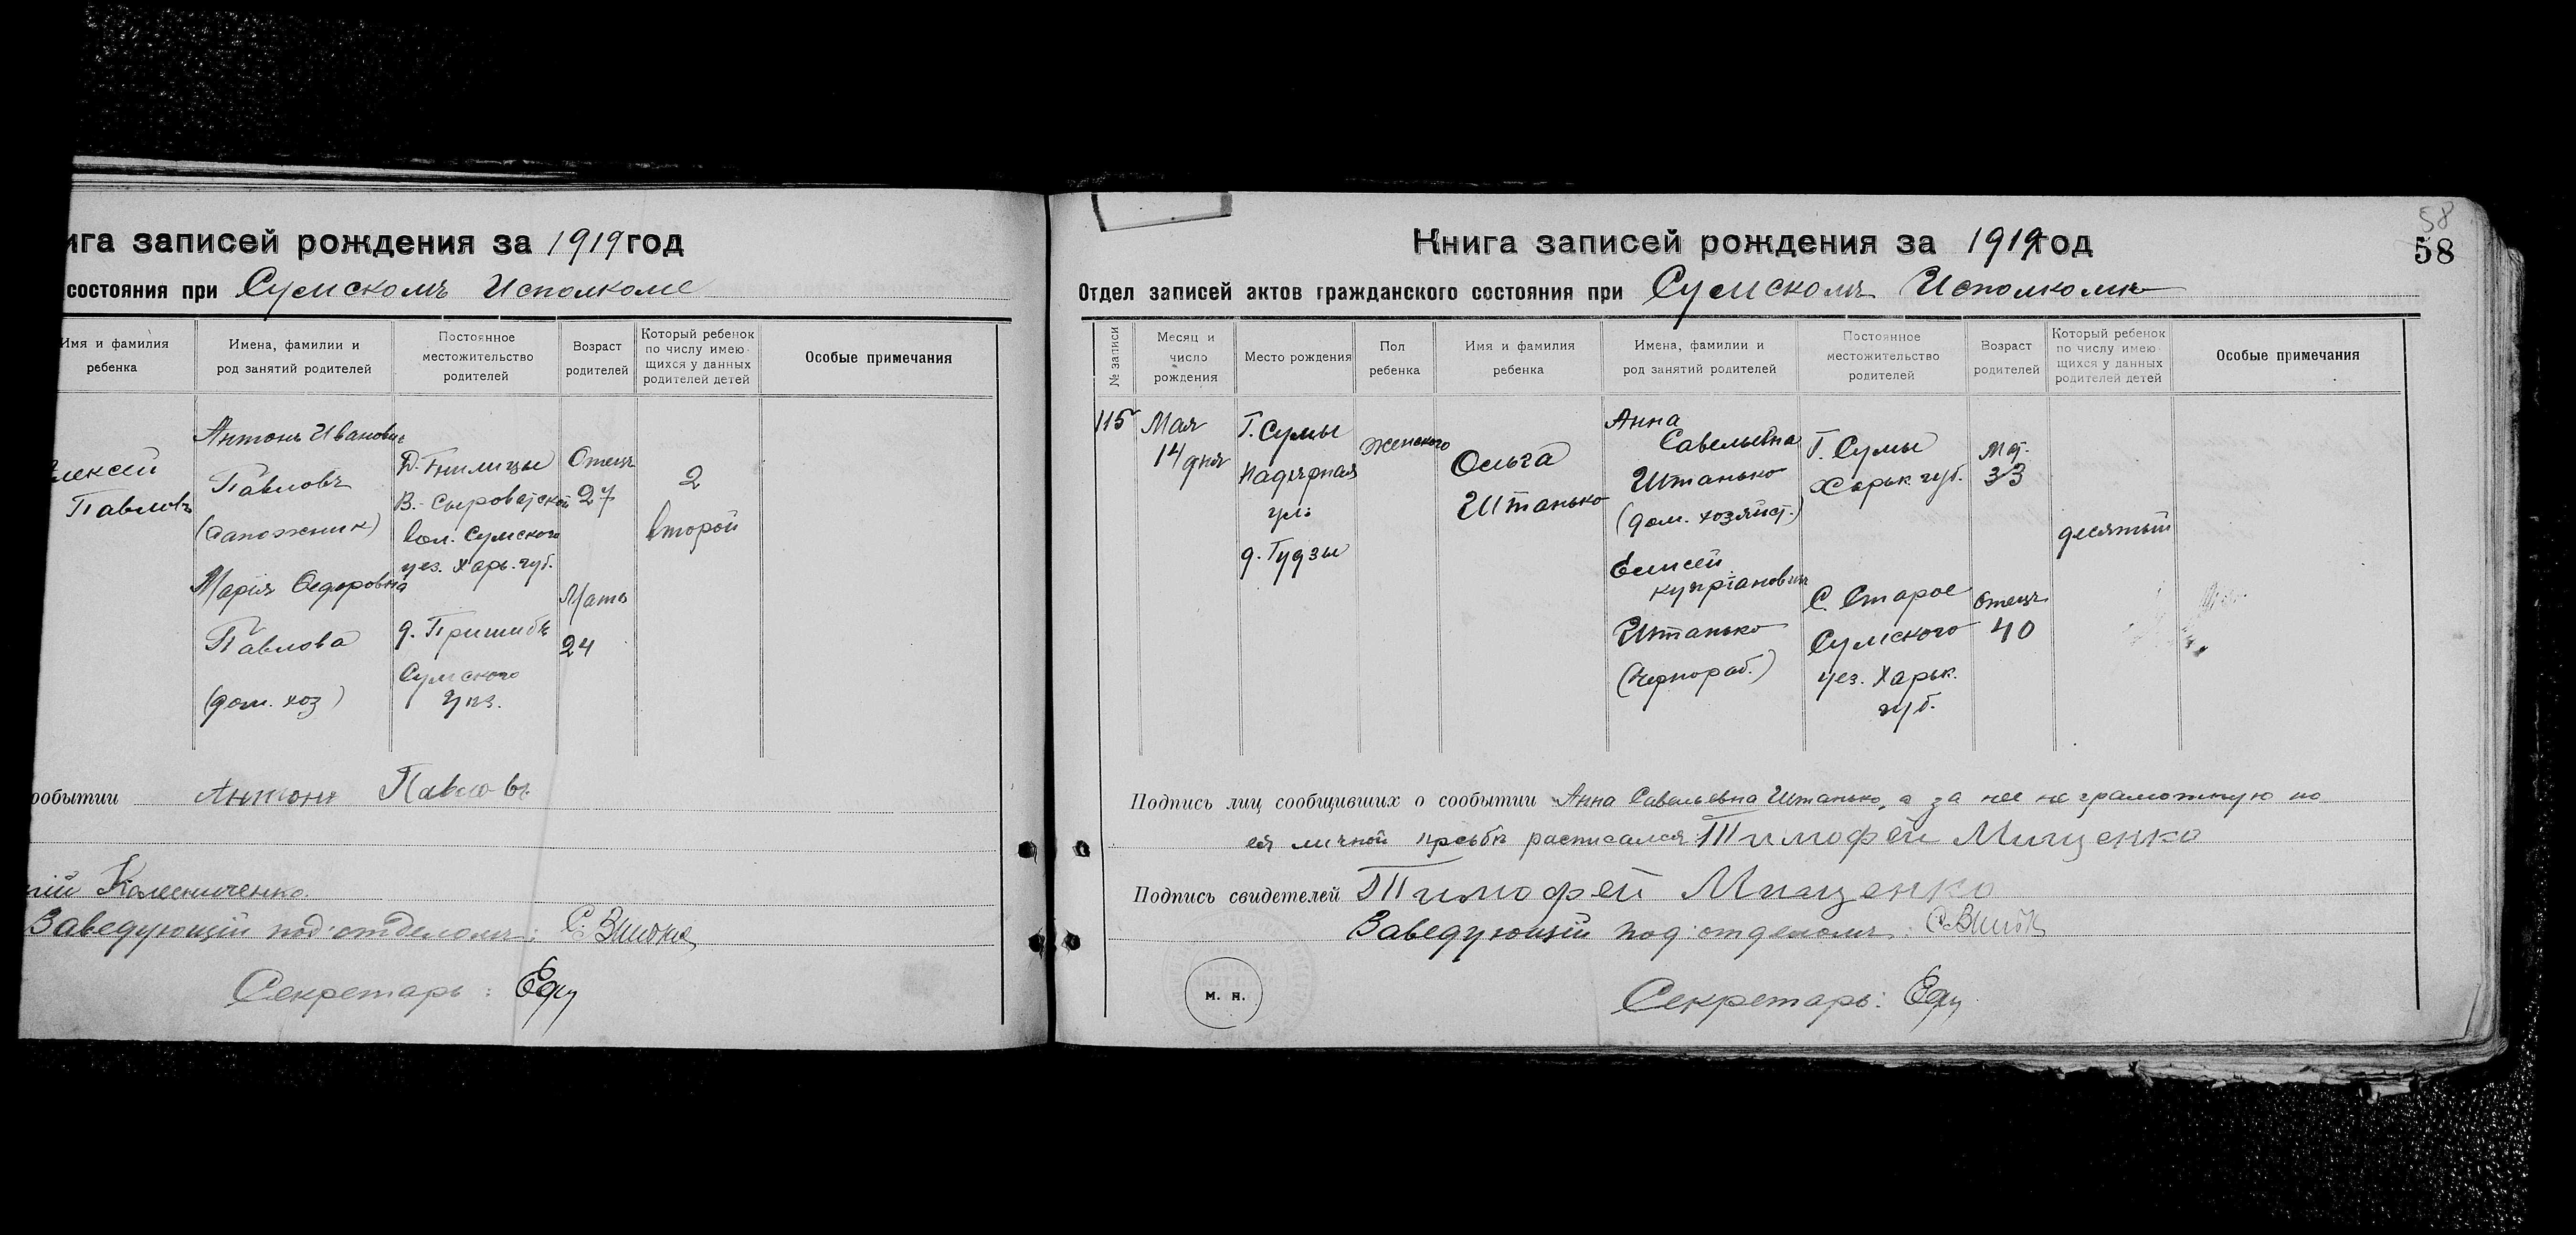 ига записей рождения за 1919 год
состояния при Сумскомъ Исполкоме
Имя и фамилия
ребенка
Имена, фамилии и
род занятий родителей
Постоянное
местожительство
родителей
Возраст
родителей
Который ребенок
по числу имею-
щихся у данных
родителей детей
Особые примечания
лексей
Павловъ
Антонъ Ивановичъ
Павловъ
(сапожник)
Марія Федоровна
Павлова
(дом. хоз)
Д. Гнилицы
В.-Сыроватской
вол. Сумского
уез. Харь. губ.
д. Пришибъ
Сумского
Отецъ
27
Мать
24
2
второй
сообытии Антонъ Павловъ
Колесниченко
Заведующій под'отделомъ:
Секретарь:
58
58
Книга записей рождения за 1919 год
Отдел записей актов гражданского состояния при Сумскомъ Исполкомъ
№ записи
Месяц и
число
рождения
Место рождения
Пол
ребенка
Имя и фамилия
ребенка
Имена, фамилии и
род занятий родителей
Постоянное
местожительство
родителей
Возраст
родителей
Который ребенок
по числу имею
щихся у данных
родителей детей
Особые примечания
115
Мая
14 дня
Г. Сумы
ул.
д. Гудзы
женского
Ольга
Штанько
Анна
Савельевна
Штанько
(дом. хозяйст.)
Елисей
Купріановичъ
Штанько
(чернораб.)
Г. Сумы
Харьк губ.
С. Старое
Сумского
уез. Харьк.
губ.
Мат.
33
Отецъ
40
десятый
Подпись лиц сообщивших о сообытии Анна Савельевна Штанько, а за нее не грамотную по
ея личной просьбѣ расписался: Тимофей Мищенко
Подпись свидетелей Тимофей Мищенко
Заведующій под'отделомъ:
М. П.
Секретарь: